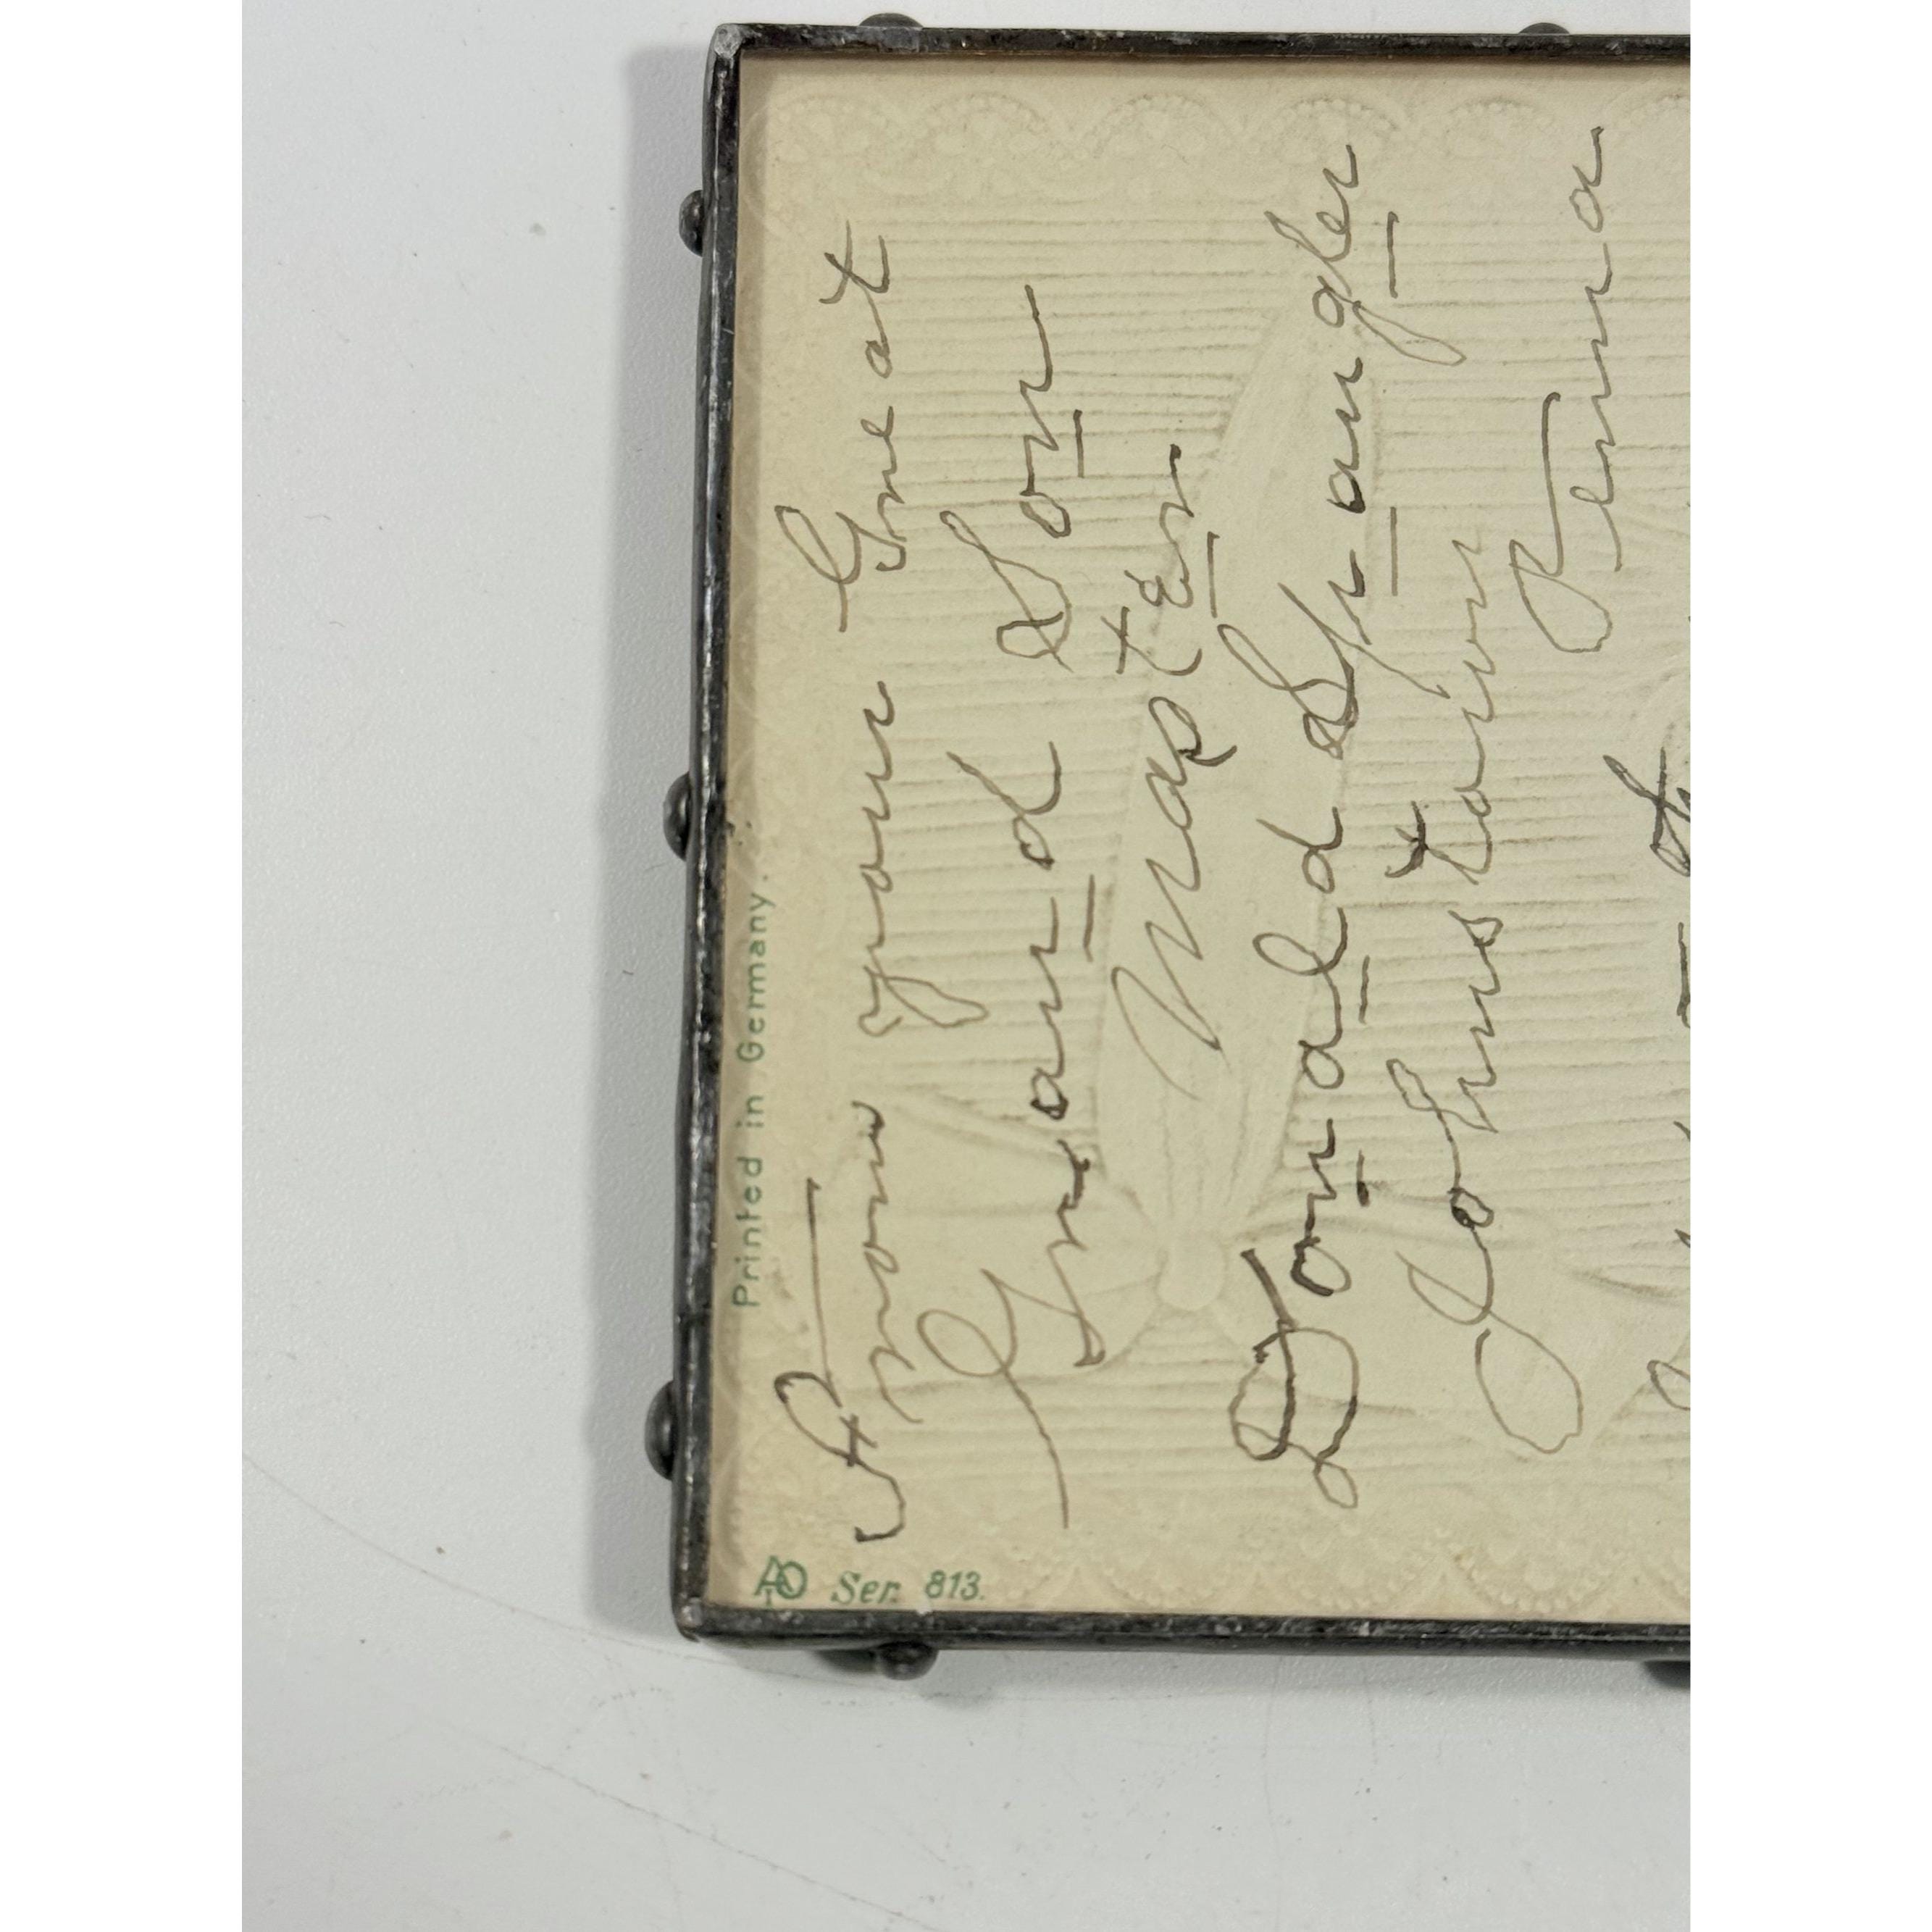 Printed in Germany.
From your Great
Grand Son
Master
Donald Spangler
Johnstown Penna
ATO Ser. 813.